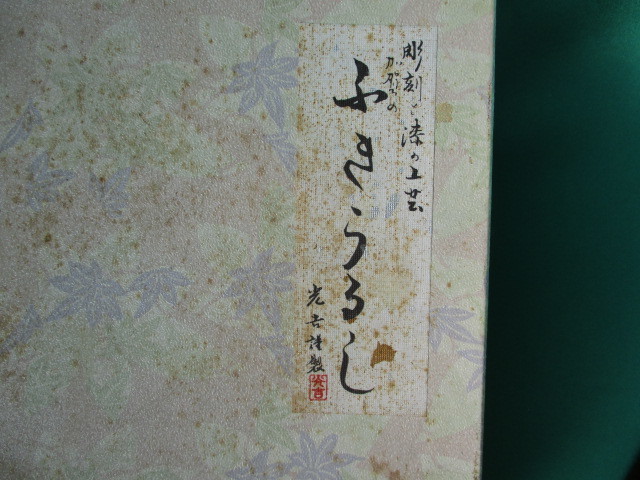 彫刻と漆の工芸
ふきうるし
光吉謹製
光吉